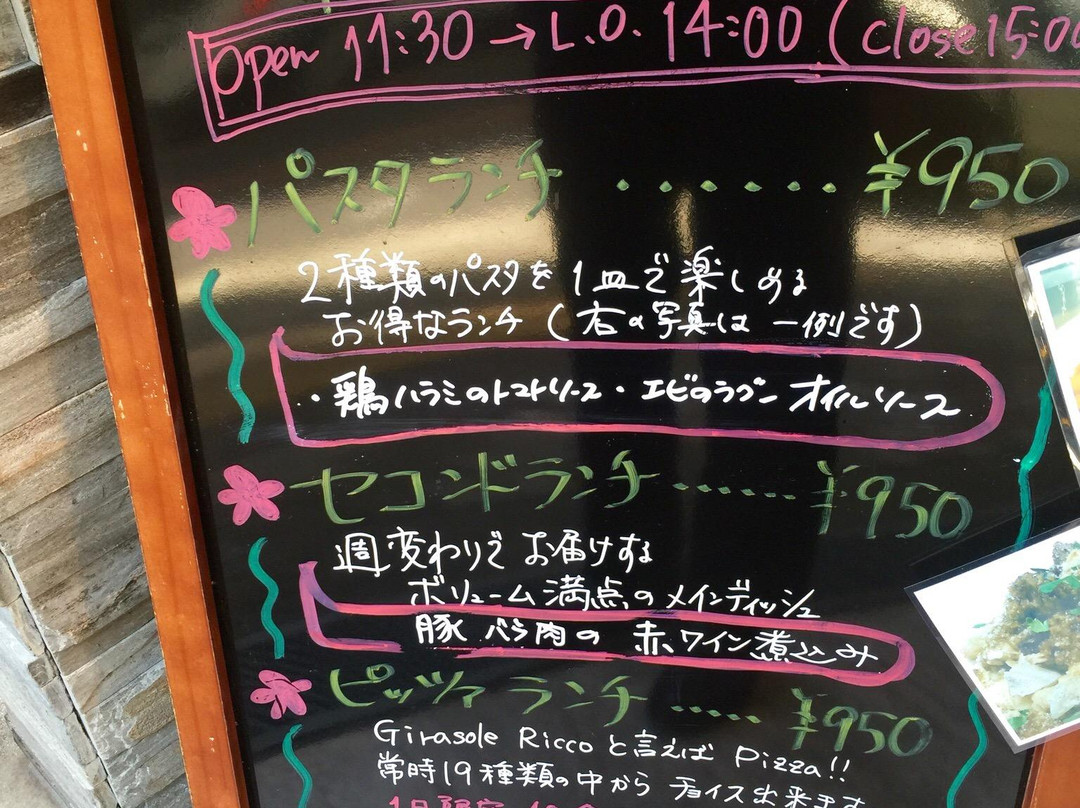 Open 11:30 → L.O. 14:00 (close 15:00
パスタランチ ....... ¥950
2種類のパスタを1皿で楽しめる
お得なランチ (右の写真は一例です)
・鶏ハラミのトマトソース・エビのラグー オイルソース
セコンドランチ ...... ¥950
週変わりでお届けする
ボリューム満点のメインディッシュ
豚バラ肉の赤ワイン煮込み
ピッツァランチ ..... ¥950
Girasole Riccoと言えばPizza!!
常時19種類の中からチョイス出来ます